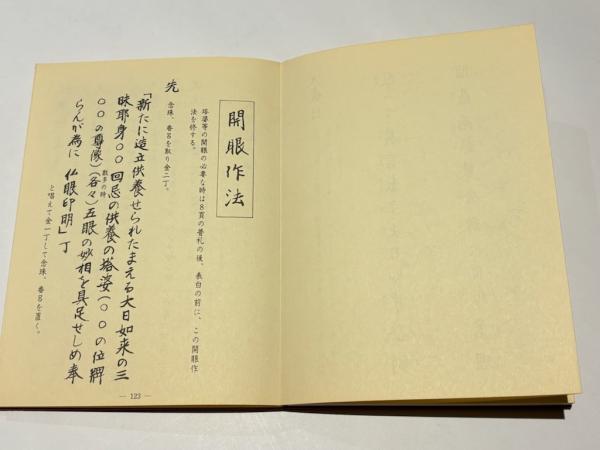 開眼作法
塔婆等の開眼の必要な時は8頁の普礼の後、表白の前に、この開眼作
法を修する。
先 念珠、香呂を取り金二丁。
「新たに造立供養せられたまえる大日如来の三
昧耶身〇〇回忌の供養の塔婆（〇〇の位牌
〇〇の尊像）（各々）五眼の妙相を具足せしめ奉
数多の時
らんが為に 仏眼印明」丁
と唱えて金一丁して念珠、香呂を置く。
— 123 —